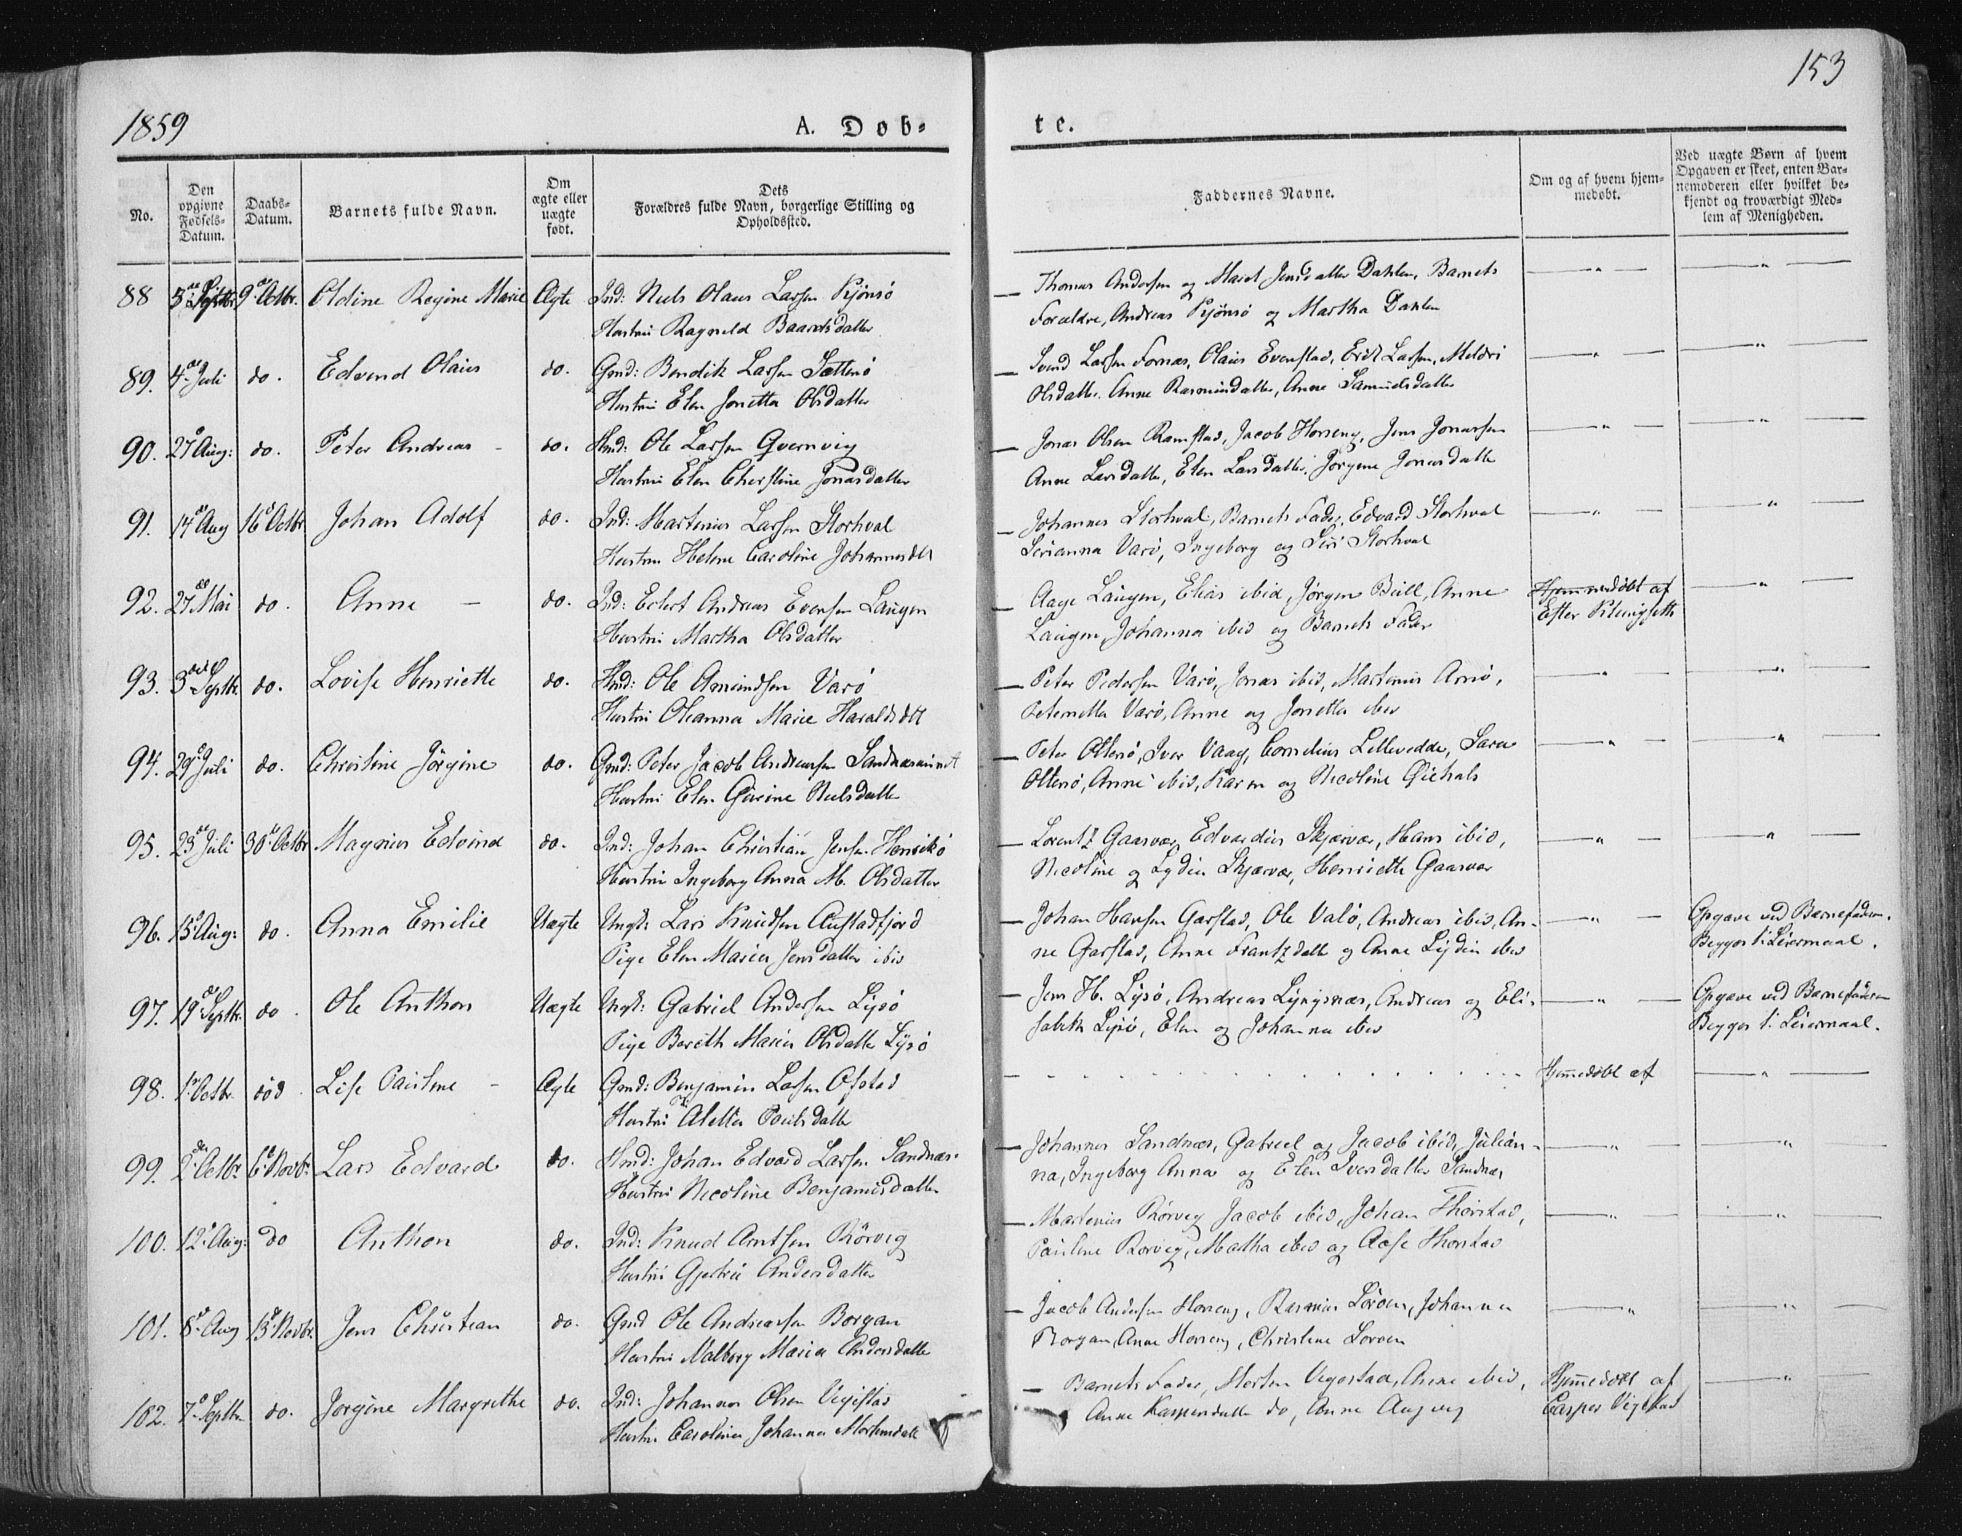 1859
A. Døb-
te.
153
No.
Den opgivne Fødsels-Datum.
Daabs-Datum.
Barnets fulde Navn.
Om ægte eller uægte født.
Dets Forældres fulde Navn, borgerlige Stilling og Opholdssted.
Faddernes Navne.
Om og af hvem hjem-medøbt.
Ved uægte Børn af hvem Opgaven er skeet, enten Bar-nemoderen eller hvilket be-kjendt og troværdigt Med-lem af Menigheden.
88 9de Octbr. Oldine Regine Marie Ægte Ind: Niels Olaus Larsen
Hustru Ragnild Baardsdatter
Thomas Andersen og Maret Jensdatter Dahlen, Barnets
Forældre, Andreas og Martha Dahlen
89. 4de Juli do. Edvend Olaus do. Gmd: Bendik Larsen Sætterø
Hustru Elen Jonetta Olsdatter
Svend Larsen Fornæs, Olaus Evenstad, Erik Larsen, Meldri
Olsdatter, Anne Rasmusdatter, Anne Samuelsdatter
90. 27de Aug: do. Peter Andreas - do. Hmd: Ole Larsen Qvernvig
Hustru Elen Christine Jonasdatter
Jonas Olsen Ramstad, Jacob Horseng, Jens Jonassen
Anne Larsdatter, Elen Larsdatter, Jørgine Jonasdatter
91. 14de Aug 16de Octbr. Johan Adolf do. Ind: Martenius Larsen Storhval
Hustru Helene Caroline Johannesdtt
Johannes Storhval, Barnets Fader, Edvard Storhval
Serianna Varø, Ingeborg og Siri Storhval
92. 27de Mai do. Anne - do. Ind: Eclert Andreas Evensen Laugen
Hustru Martha Olsdatter
Aage Laugen, Elias ibid, Jørgen Bull, Anne
Laugen, Johanna ibid og Barnets Fader
Hjemmedøbt af
Ester
93. 3die Septbr. do. Lovise Henriette do. Hmd: Ole Amundsen Varø
Hustru Oleanna Marie Haraldsdtt
Peter Pedersen Varø, Jonas ibid, Martenius Arnø,
Peternetta Varø, Anne og Jonetta ibid
94. 29de Juli do. Christine Jørgine do. Gmd: Peter Jacob Andreassen Sandnæsaunet
Hustru Elen Gurine Nielsdatter
Peter Otterø, Iver Vaag, Cornelius Lillevedde, Sara
Otterø, Anne ibid, Karen og Nicoline
95. 23de Juli 30te Octbr. Magnus Edvind do. Ind: Johan Christian Jensen Henrikø
Hustru Ingeborg Anna M. Olsdatter
Lorentz Gaasvær, Edvardius Skjærvær, Hans ibid,
Nicoline og Lydia Skjærvær, Henriette Gaasvær
96. 15de Aug: do. Anna Emilie Uægte Ungk: Lars Knudsen Austadfjord
Pige Elen Maria Jensdatter ibid
Johan Hansen Garstad, Ole Valø, Andreas ibid, An-
ne Garstad, Anne Frantzdatter og Anne Lydia ibid
Opgave ved Barnefaderen.
Begges 1: Leiermaal.
97. 19de Septbr. do Ole Anthon Uægte Ungk: Gabriel Andersen Lysø
Pige Berith Maria Olsdatter Lysø
Jens H. Lysø, Andreas Lyngsnæs, Andreas og Eli-
sabeth Lysø, Elen og Johanna ibid
Opgave ved Barnefaderen
Begges 1: Leiermaal.
98. 1ste Octbr. død. Lise Pauline - Ægte Gmd: Benjamin Larsen Ofstad
Hustru Aletta Paulsdatter
Hjemmedøbt af
99. 2den Octbr. 6te Novbr. Lars Edvard do. Hmd: Johan Edvard Larsen Sandnæs.
Hustru Nicoline Benjaminsdatter
Johannes Sandnæs, Gabriel og Jacob ibid, Julian-
na, Ingeborg Anna og Elen Iversdatter Sandnæs
100. 12te Aug: do Anthon do. Ind: Knud Arntsen Rørvig
Hustru Gjertru Andersdatter
Martenius Rørvig, Jacob ibid, Johan Thorstad,
Pauline Rørvig, Matha ibid og Aase Thorstad
101. 8de Aug 13de Novbr. Jens Christian do. Gmd Ole Andreassen Borgan
Hustru Malborg Maria Andersdatter
Jacob Andersen Horseng, Rasmus Sørøen, Johanna
Borgan, Anne Horseng, Christine Sørøen
102. 7de Septbr do. Jørgine Margrethe do. Ind: Johannes Olsen Vegistad
Hustru Carolina Johanna Mortensdatt
Barnets Fader, Morten Vegestad, Anne ibid,
Anne Kaspersdatter do, Anne Augvig
Hjemmedøbt af
Casper Vigstad